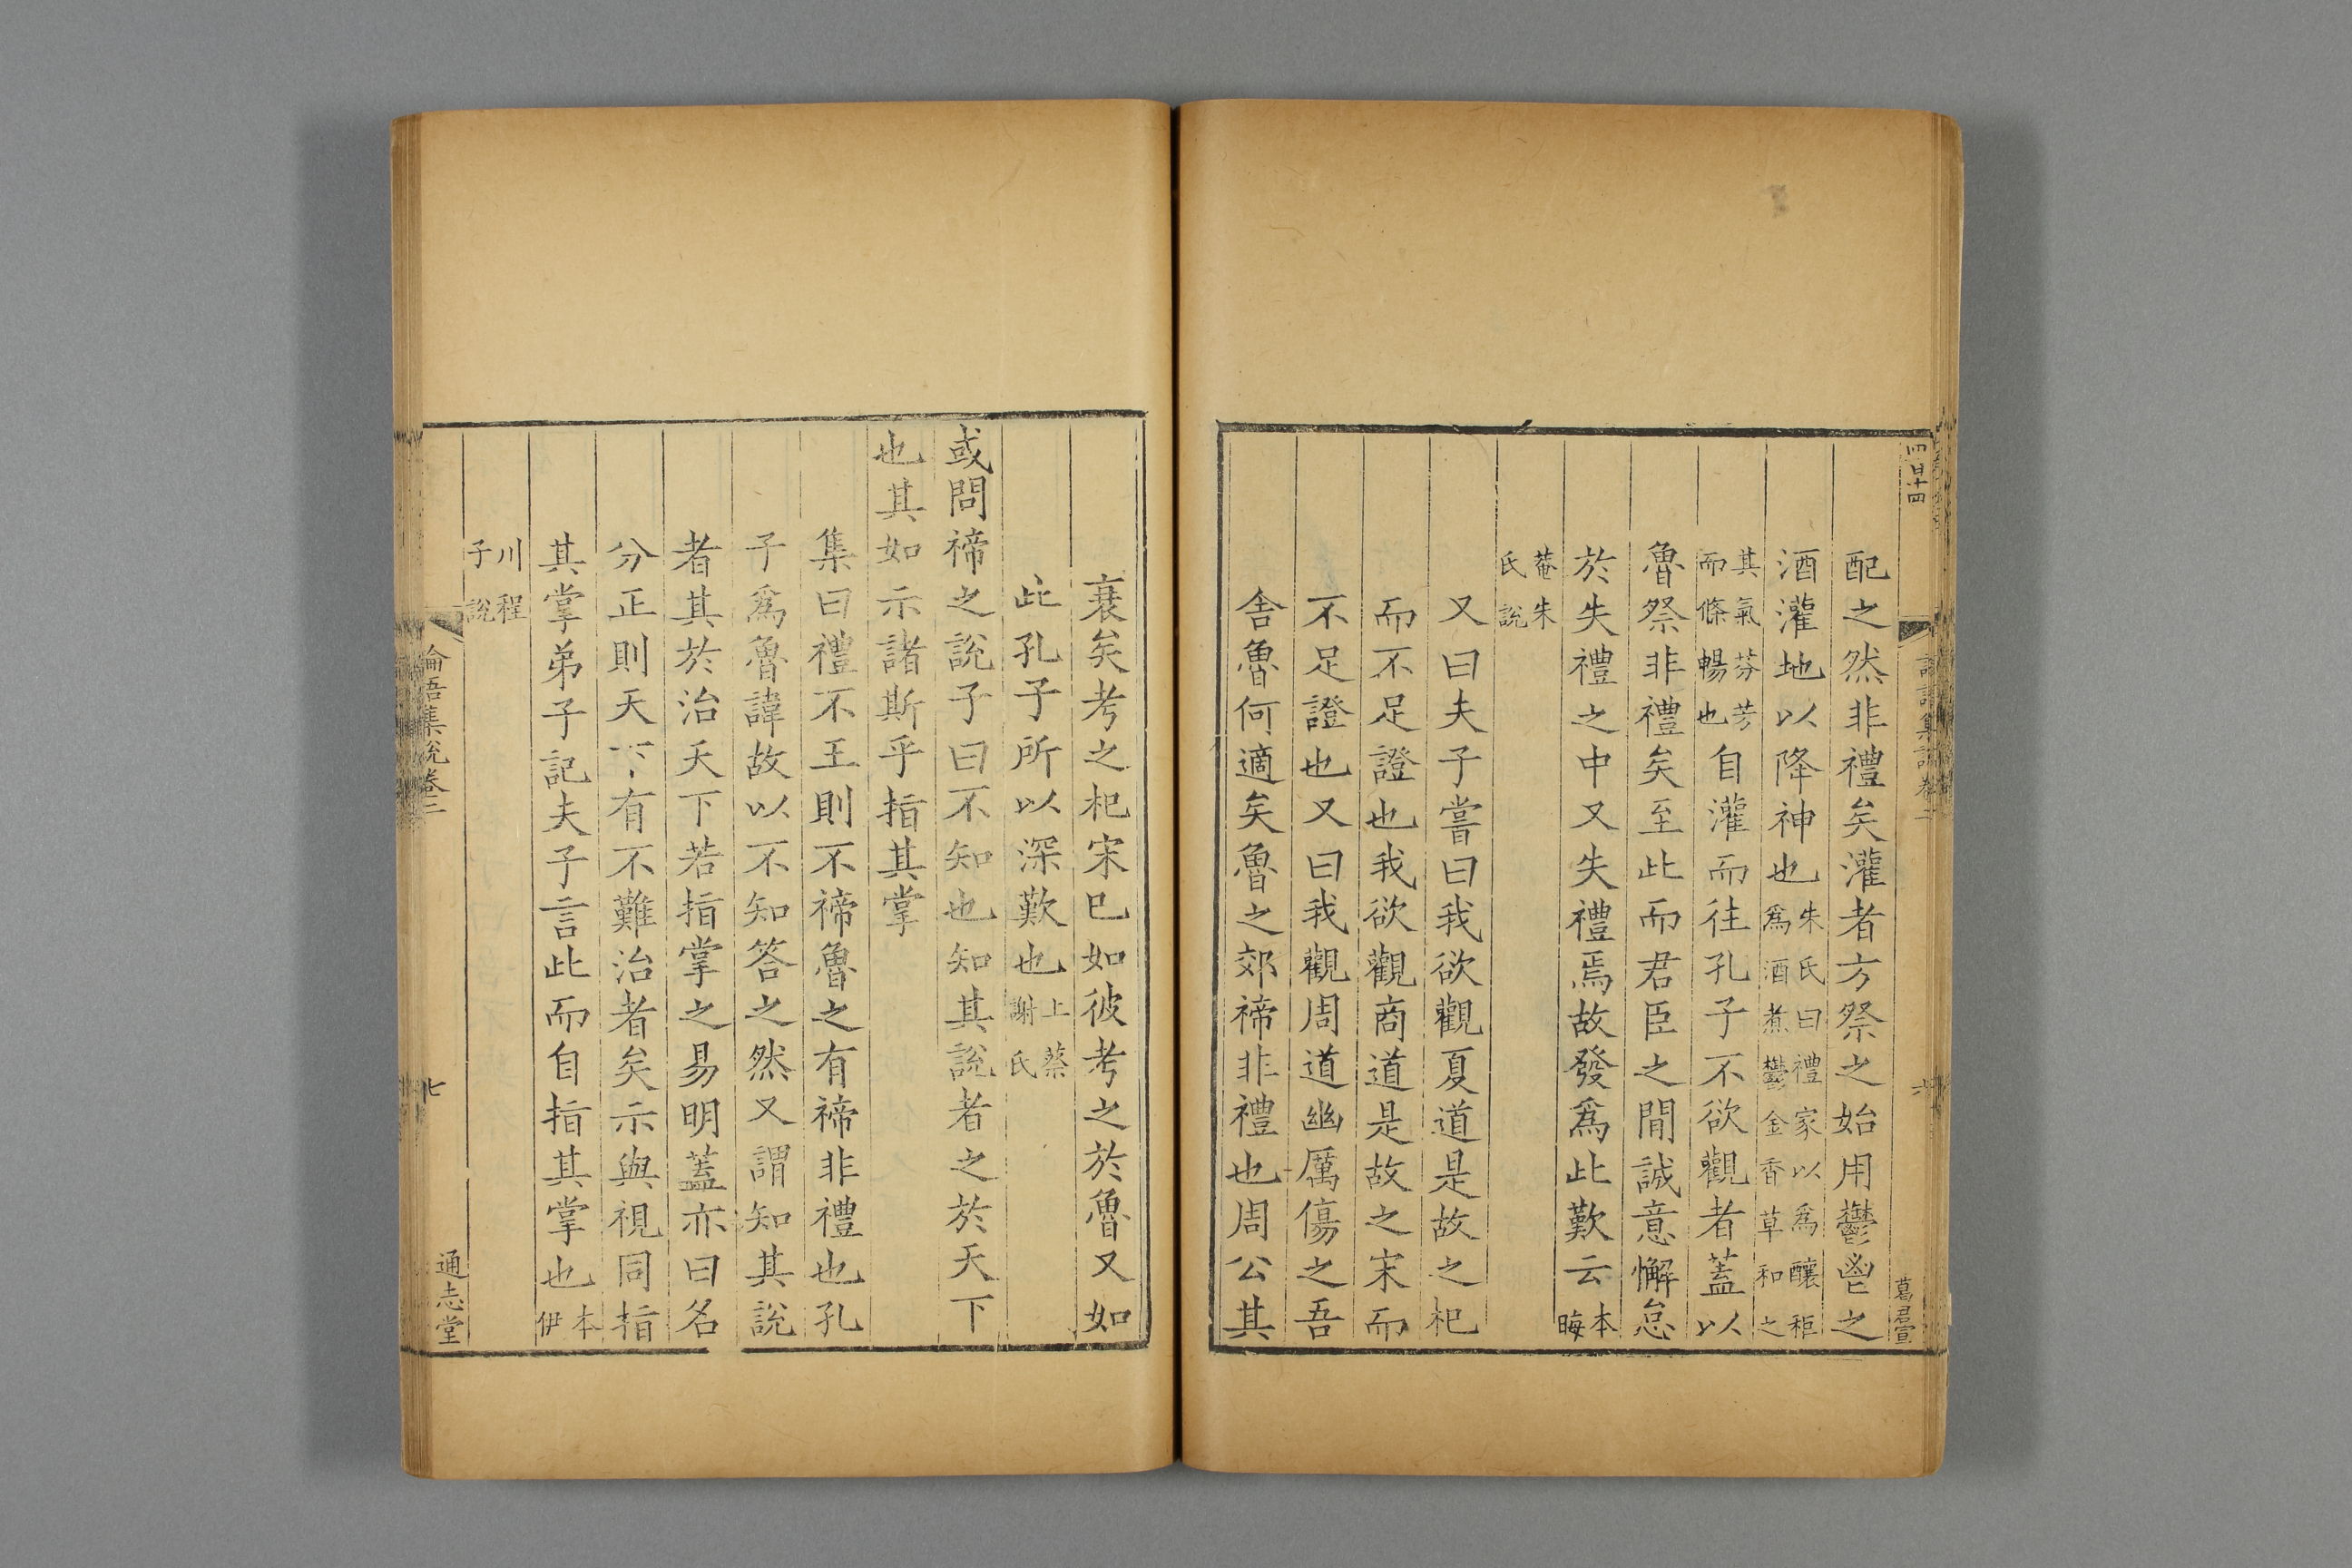 四百十四
論語集說卷二
六
葛君宣
配之然非禮矣灌者方祭之始用鬱鬯之
酒灌地以降神也朱氏曰禮家以爲釀秬爲酒煮鬱金香草和之
其氣芬芳而條暢也自灌而往孔子不欲觀者蓋以
魯祭非禮矣至此而君臣之閒誠意懈怠
於失禮之中又失禮焉故發爲此歎云本晦
菴朱氏說
又曰夫子嘗曰我欲觀夏道是故之杞
而不足證也我欲觀商道是故之宋而
不足證也又曰我觀周道幽厲傷之吾
舍魯何適矣魯之郊禘非禮也周公其
衰矣考之杞宋巳如彼考之於魯又如
此孔子所以深歎也上蔡謝氏
或問禘之說子曰不知也知其說者之於天下
也其如示諸斯乎指其掌
集曰禮不王則不禘魯之有禘非禮也孔
子爲魯諱故以不知答之然又謂知其說
者其於治天下若指掌之易明蓋亦曰名
分正則天下有不難治者矣示與視同指
其掌弟子記夫子言此而自指其掌也本伊
川程子說
論語集說卷二
七
通志堂